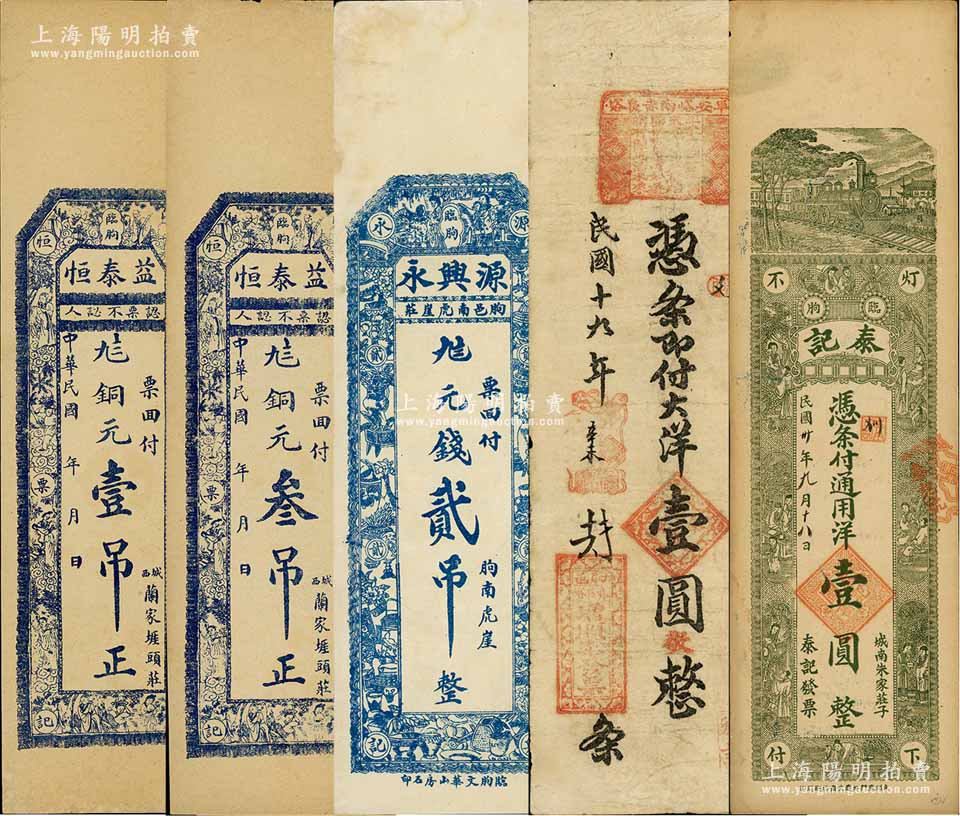 上海陽明拍賣
www.yangmingauction.com
臨朐
恒
益泰恒
認票不認人
票面付
銅元壹吊正
中華民國 年 月 日
城西
蘭家埠頭莊
票
記
臨朐
恒
益泰恒
認票不認人
票面付
銅元叁吊正
中華民國 年 月 日
城西
蘭家埠頭莊
票
記
臨朐
源
永
源興永
朐邑南虎崖莊
票面付
元錢貳吊整
朐南虎崖
貳
貳
記
臨朐文華山房石印
上海陽明拍賣
www.yangmingauction.com
憑条即付大洋壹圓整
民國十九年
辛未
条
灯
不
臨
朐
泰記
憑条付通用洋壹圓整
民國廿年九月十八日
城南朱家莊子
泰記發票
下
付
上海陽明拍賣
www.yangmingauction.com